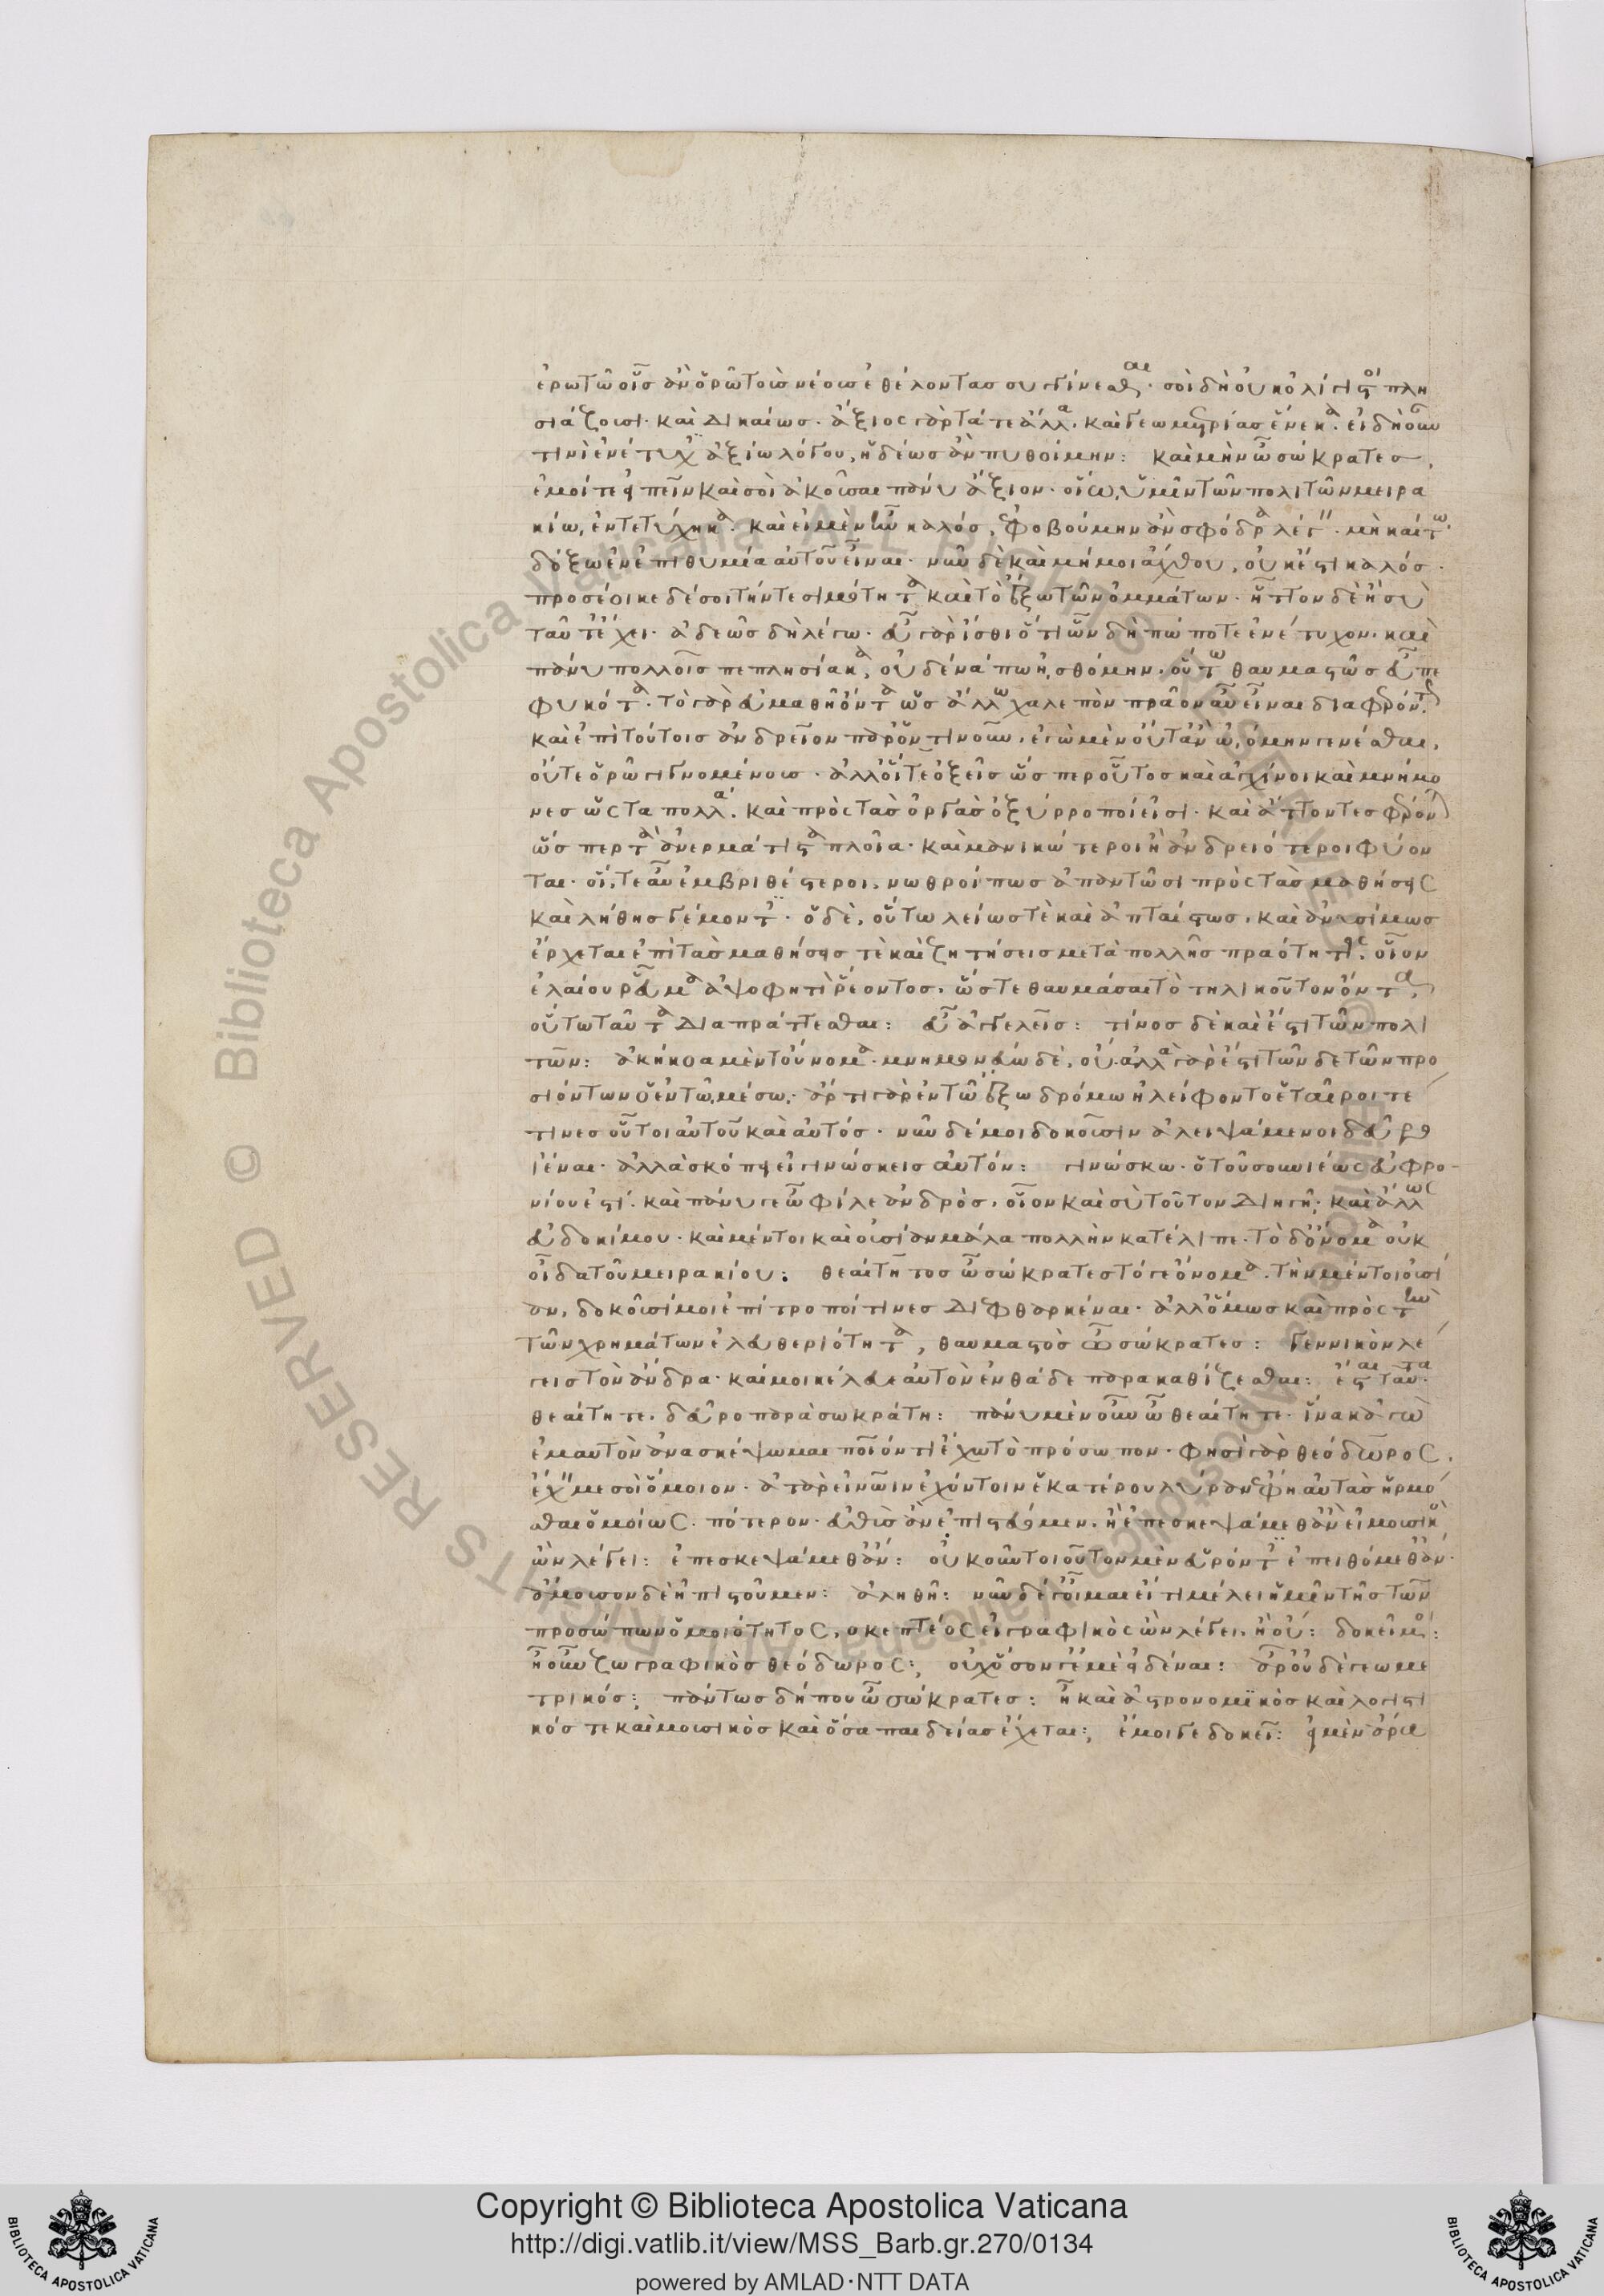 ἐρωτῶ οὓς ἂν ὁρῶ τοὺς νέους ἐθέλοντας συγγίνεσθαι. σοὶ δὴ οὐκ ὀλίγιστοι πλη
σιάζουσι. καὶ δικαίως. ἄξιος γὰρ τά τε ἄλλα. καὶ γεωμετρίας ἕνεκα. εἰ δὴ οὖν
τινὶ ἐνέτυχες ἀξίω λόγου, ἡδέως ἂν πυθοίμην: καὶ μὴν ὦ σώκρατες,
ἐμοί τε εἰπεῖν καὶ σοὶ ἀκοῦσαι πάνυ ἄξιον. οἵω, ὑμῖν τῶν πολιτῶν μειρα
κίω, ἐντετύχηκα. καὶ εἰ μὲν ἦν καλός, ἐφοβούμην ἂν σφόδρα λέγειν. μὴ καί τω
δόξω ἐν ἐπιθυμία αὐτοῦ εἶναι. νῦν δὲ καὶ μή μοι ἄχθου, οὐκ ἔστι καλός.
προσέοικε δὲ σοὶ τήν τε σιμότητα καὶ τὸ ἔξω τῶν ὀμμάτων. ἧττον δὲ ἢ σὺ
ταῦτ' ἔχει. ἀδεῶς δὴ λέγω. εὖ γὰρ ἴσθι ὅτι ὧν δὴ πώποτε ἐνέτυχον. καὶ
πάνυ πολλοῖς πεπλησίακα, οὐδένα πω ἠσθόμην. οὕτω θαυμαστῶς εὖ πε
φυκότα. τὸ γὰρ εὐμαθῆ ὄντα ὡς ἄλλω χαλεπὸν πρᾶον αὖ εἶναι διαφερόντως
καὶ ἐπὶ τούτοις ἀνδρεῖον παρ' ὁντινοῦν. ἐγὼ μὲν οὔτ' ἂν ὠόμην γενέσθαι,
οὔτε ὁρῶ γιγνομένους. ἀλλ' οἵ τε ὀξεῖς ὥσπερ οὗτος καὶ ἀγχίνοι καὶ μνήμο
νες ὡς τὰ πολλά. καὶ πρὸς τὰς ὀργὰς ὀξύρροποί εἰσι. καὶ ἄττοντες φέρονται
ὥσπερ τὰ ἀνερμάτιστα πλοῖα. καὶ μανικώτεροι ἢ ἀνδρειότεροι φύον
ται. οἵ, τε αὖ ἐμβριθέστεροι, νωθροί πως ἀπαντῶσι πρὸς τὰς μαθήσεις
καὶ λήθης γέμοντες. ὁ δὲ, οὕτω λείως τὲ καὶ ἀπταίστως, καὶ ἀνυσίμως
ἔρχεται ἐπὶ τὰς μαθήσεις τὲ καὶ ζητήσεις μετὰ πολλῆς πραότητος. οἷον
ἐλαίου ῥεῦμα ἀψοφητὶ ῥέοντος. ὥστε θαυμάσαι τὸ τηλικοῦτον ὄντα,
οὕτω ταῦτα διαπράττεσθαι: εὖ ἀγγελεῖς: τίνος δὲ καὶ ἔστι τῶν πολι
τῶν: ἀκήκοα μὲν τοὔνομα. μνημονεύω δὲ, οὔ. ἀλλὰ γάρ ἐστι τῶν δε τῶν προ
σιόντων ὁ ἐν τῶ μέσω. ἄρτι γὰρ ἐν τῶ ἔξω δρόμω ἠλείφοντο ἑταῖροί τέ
τινες οὗτοι αὐτοῦ καὶ αὐτός. νῦν δέ μοι δοκοῦσιν ἀλειψάμενοι δεῦρο
ἰέναι. ἀλλὰ σκόπει εἰ γινώσκεις αὐτόν: γινώσκω. ὁ τοῦ σουνιέως εὐφρο
νίου ἐστί. καὶ πάνυ γε ὦ φίλε ἀνδρὸς, οἷον καὶ σὺ τοῦτον διηγῆ. καὶ ἄλλως
εὐδοκίμου. καὶ μέντοι καὶ οὐσίαν μάλα πολλὴν κατέλιπε. τὸ δ' ὄνομα οὐκ
οἶδα τοῦ μειρακίου: θεαίτητος ὦ σώκρατες τό γε ὄνομα. τὴν μέντοι οὐσί
αν, δοκοῦσί μοι ἐπίτροποί τινες διεφθαρκέναι. ἀλλ' ὅμως καὶ πρὸς τὴν
τῶν χρημάτων ἐλευθεριότητα, θαυμαστὸς ὦ σώκρατες: γεννικὸν λέ
γεις τὸν ἄνδρα. καί μοι κέλευε αὐτὸν ἐνθάδε παρακαθίζεσθαι: ἔσται ταῦτα.
θεαίτητε, δεῦρο παρὰ σωκράτη: πάνυ μὲν οὖν ὦ θεαίτητε. ἵνα κἀγὼ
ἐμαυτὸν ἀνασκέψωμαι ποῖόν τι ἔχω τὸ πρόσωπον. φησὶ γὰρ θεόδωρος,
ἔχειν με σοὶ ὅμοιον. ἀτὰρ εἰ νῶιν ἐχόντοιν ἑκατέρου λύραν ἔφη αὐτὰς ἡρμό
σθαι ὁμοίως. πότερον εὐθὺς ἂν ἐπιστεύομεν, ἢ ἐπεσκεψάμεθ' ἂν εἰ μουσικὸς
ὢν λέγει: ἐπεσκεψάμεθ' ἄν: οὐκοῦν τοιοῦτον μὲν εὑρόντες ἐπειθόμεθ' ἄν.
ἄμουσον δὲ ἠπιστοῦμεν: ἀληθῆ: νῦν δέ γ' οἶμαι εἴ τι μέλει ἡμῖν τῆς τῶν
προσώπων ὁμοιότητος, σκεπτέος εἰ γραφικὸς ὢν λέγει, ἢ οὔ: δοκεῖ μοι:
ἦ οὖν ζωγραφικὸς θεόδωρος; οὐχ' ὅσον γ' ἐμὲ εἰδέναι: ἆρ' οὐδὲ γεωμε
τρικός; πάντως δήπου ὦ σώκρατες: ἦ καὶ ἀστρονομϊκὸς καὶ λογιστι
κός τε καὶ μουσικὸς καὶ ὅσα παιδείας ἔχεται; ἔμοιγε δοκεῖ: εἰ μὲν ἄρα
Copyright © Biblioteca Apostolica Vaticana
http://digi.vatlib.it/view/MSS_Barb.gr.270/0134
powered by AMLAD·NTT DATA